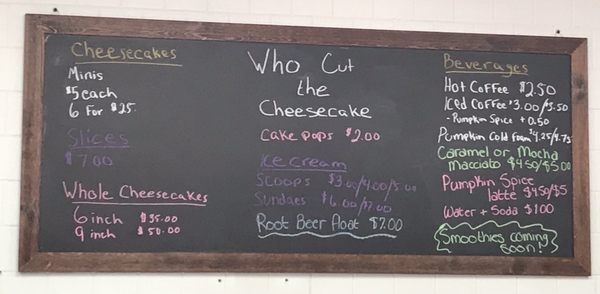 Cheesecakes
Minis
$5 each
6 For $25.
Slices
$7.00
Whole Cheesecakes
6 inch $35.00
9 inch $50.00
Who Cut
the
Cheesecake
Cake pops $2.00
Ice cream
Scoops $3.00/4.00/5.00
Sundaes $6.00/7.00
Root Beer float $7.00
Beverages
Hot Coffee $2.50
Iced Coffee $3.00/3.50
- Pumpkin Spice + 0.50
Pumpkin Cold Foam $4.25/4.75
Caramel or Mocha
macciato $4.50/$5.00
Pumpkin Spice
latte $4.50/$5
Water + Soda $1.00
Smoothies coming
soon!